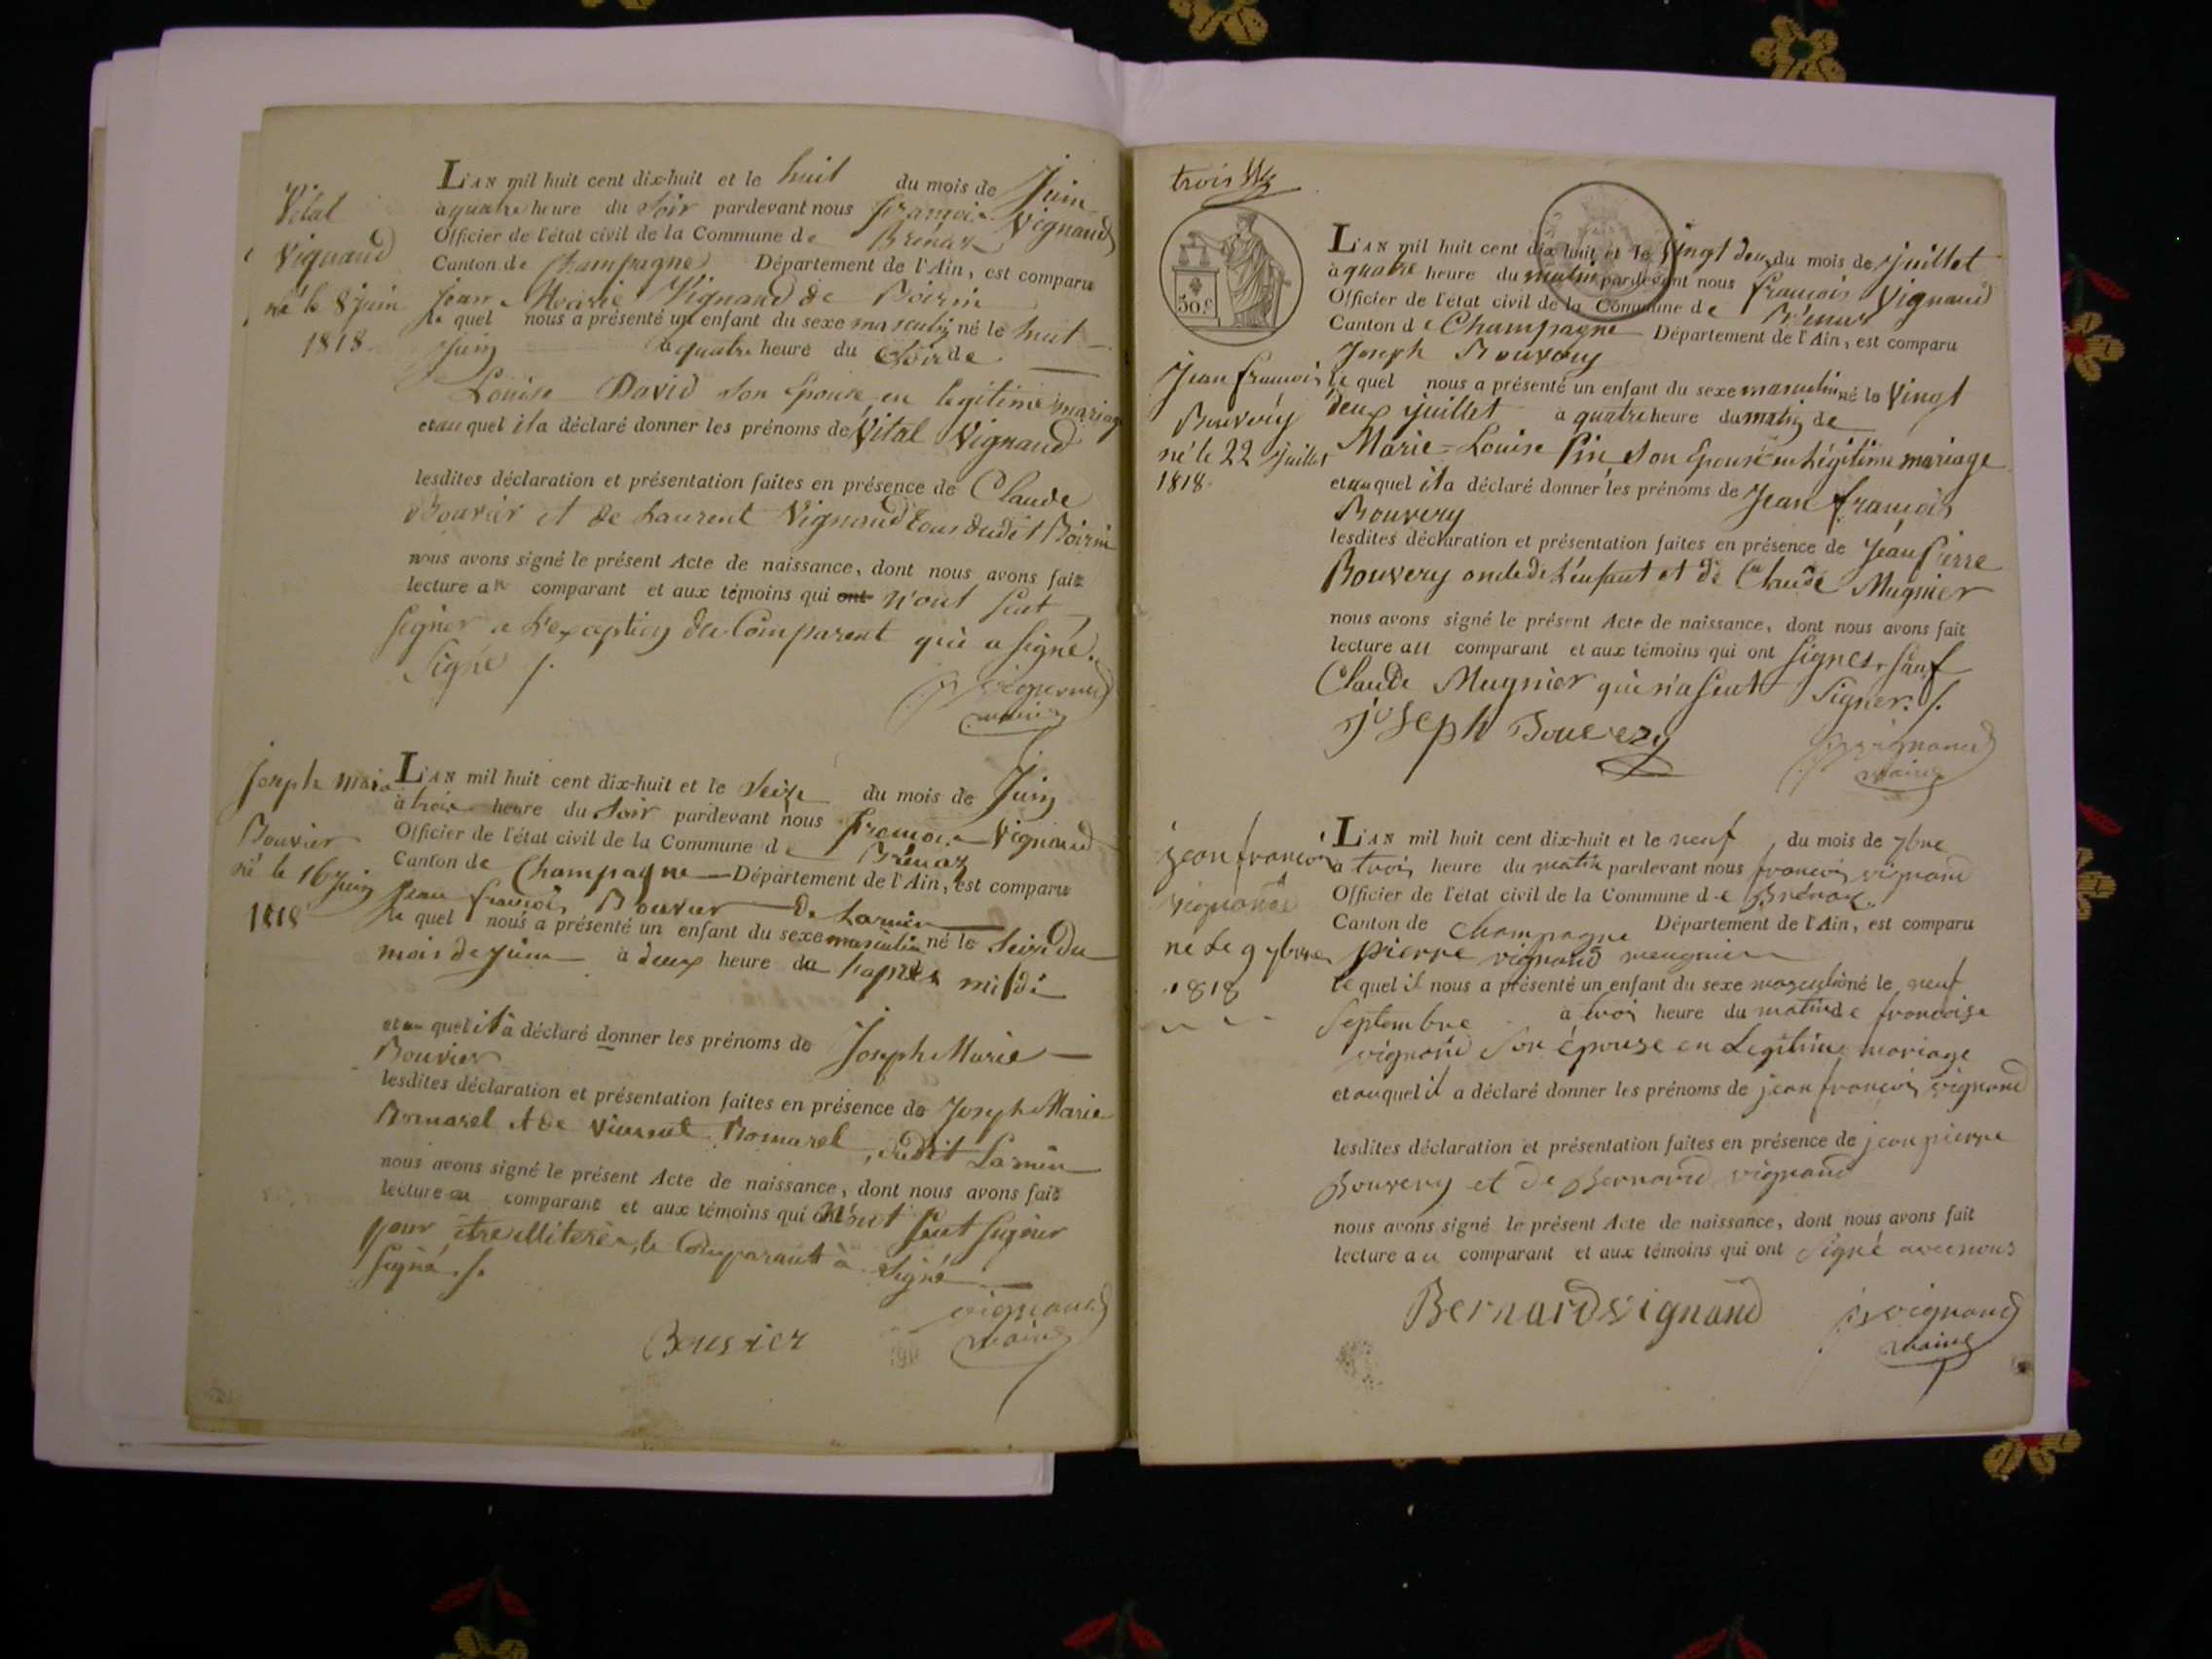 Vital
Vignand
né le 8 juin
1818.
L'AN mil huit cent dix-huit et le huit du mois de Juin
à quatre heure du Soir pardevant nous françois Vignand
Officier de l'état civil de la Commune de Brénaz
Canton de Champagne Département de l'Ain, est comparu
Jean Marie Vignand de Boirin
le quel nous a présenté un enfant du sexe masculin né le huit
Juin à quatre heure du Soir de
Louise David son Epouse en legitime mariage
et au quel il a déclaré donner les prénoms de Vital Vignand
lesdites déclaration et présentation faites en présence de Claude
Bouvier et de Laurent Vignand tous dudit Boirin
nous avons signé le présent Acte de naissance, dont nous avons fait
lecture au comparant et aux témoins qui ont n'ont scut
signer a l'exception du Comparent qui a signé.
Signé /.
vignand
maire
Joseph marie
Bouvier
né le 16 Juin
1818
L'AN mil huit cent dix-huit et le Seize du mois de Juin
à trois heure du Soir pardevant nous françois Vignand
Officier de l'état civil de la Commune de Brénaz
Canton de Champagne Département de l'Ain, est comparu
Jean françois Bouvier de
le quel nous a présenté un enfant du sexe masculin né le Seize du
mois de Juin à deux heure du l'après midi
et au quel il a déclaré donner les prénoms de Joseph Marie
Bouvier
lesdites déclaration et présentation faites en présence de Joseph Marie
et de Vincent dudit
nous avons signé le présent Acte de naissance, dont nous avons fait
lecture au comparant et aux témoins qui ont n'ont scut signer
pour être illiterés, le Comparant à signé
Signé ./.
Bouvier
vignand
maire
trois
50.c
L'AN mil huit cent dix-huit et le Vingt deux du mois de juillet
à quatre heure du matin pardevant nous françois Vignand
Officier de l'état civil de la Commune de Brénaz
Canton de Champagne Département de l'Ain, est comparu
Joseph Bouvery
Jean françois
Bouvery
né le 22 juillet
1818.
le quel nous a présenté un enfant du sexe masculin né le Vingt
deux juillet à quatre heure du matin de
Marie-Louise Pin son Epouse en Légitime mariage
et au quel il a déclaré donner les prénoms de Jean françois
Bouvery
lesdites déclaration et présentation faites en présence de Jean Pierre
Bouvery oncle de L'enfant et de Claude Mugnier
nous avons signé le présent Acte de naissance, dont nous avons fait
lecture au comparant et aux témoins qui ont signés, sauf
Claude Mugnier qui n'a scut signer. /.
joseph Bouvery
vignand
maire
jean francois
vignand
né le 9 7bre
1818
L'AN mil huit cent dix-huit et le neuf du mois de 7bre
à trois heure du matin pardevant nous francois vignand
Officier de l'état civil de la Commune de Brénaz.
Canton de Champagne Département de l'Ain, est comparu
pierre vignand meugnier
le quel il nous a présenté un enfant du sexe masculin né le neuf
Septembre à trois heure du matin de francoise
vignand son épouse en Legitime mariage
et auquel il a déclaré donner les prénoms de jean francois vignand
lesdites déclaration et présentation faites en présence de jean pierre
Bouvery et de Bernard vignand
nous avons signé le présent Acte de naissance, dont nous avons fait
lecture au comparant et aux témoins qui ont signé avec nous
Bernard vignand
vignand
maire